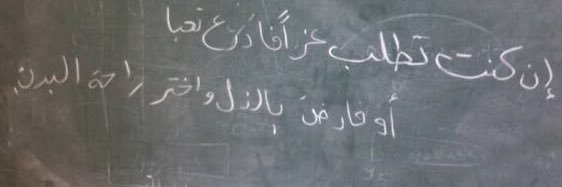 إن كنت تطلب عزاً فادرع تعبا
أو فارضَ بالذل واختر راحة البدن